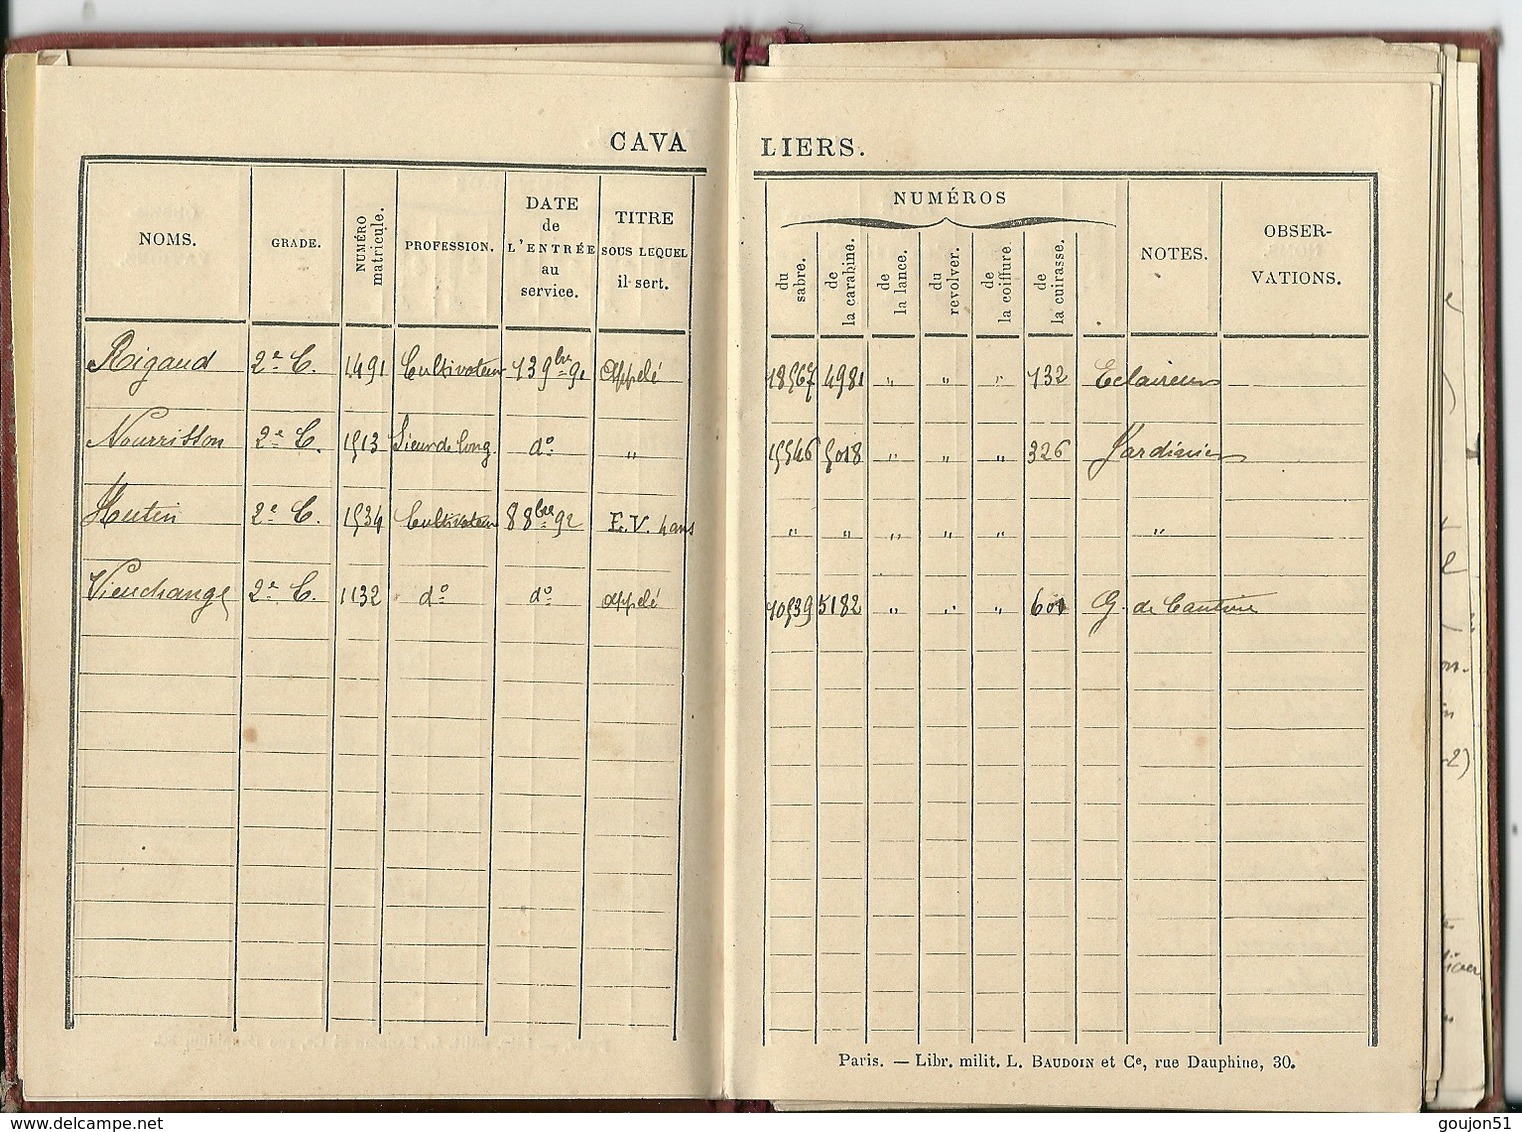 CAVALIERS.
NOMS. GRADE. NUMÉRO matricule. PROFESSION. DATE de L'ENTRÉE au service. TITRE SOUS LEQUEL il sert. NUMÉROS du sabre. de la carabine. de la lance. du revolver. de la coiffure. de la cuirasse. NOTES. OBSER-VATIONS.
Rigaud 2e C. 1491 Cultivateur 13 9bre 91 appelé 18567 4981 " " " 132 Eclaireur
Nourrisson 2e C. 1513 Scieur de long do " 15546 5018 " " " 326 Jardinier
Hutin 2e C. 1534 Cultivateur 8 8bre 92 E.V. 4 ans " " " " " "
Vieuchange 2e C. 1132 do do appelé 10539 5182 " " " 601 G. de Cantine
Paris. — Libr. milit. L. BAUDOIN et Ce, rue Dauphine, 30.
www.delcampe.net goujon51